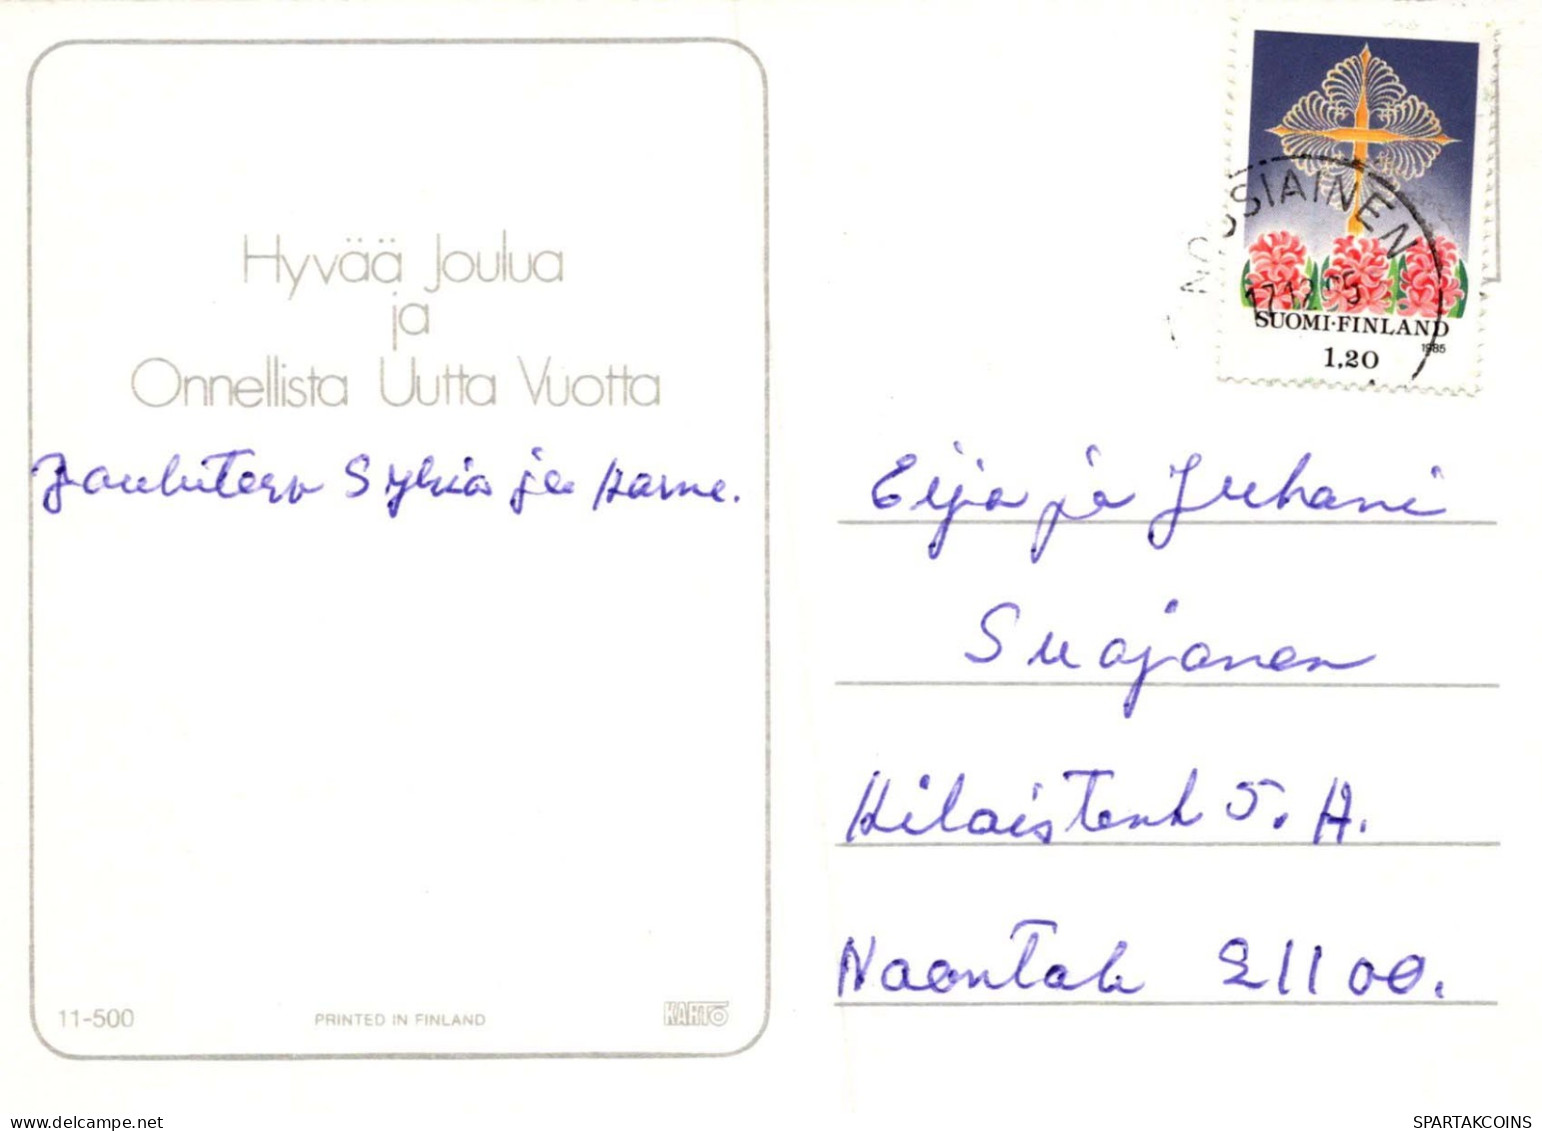 Hyvää Joulua
ja
Onnellista Uutta Vuotta
Sylvia ja
11-500
PRINTED IN FINLAND
KARTO
NOUSIAINEN
17.12.85
SUOMI·FINLAND
1985
1,20
Eija ja Juhani
Suojanen
5. A.
Naantali 21100.
SPARTAKCOINS